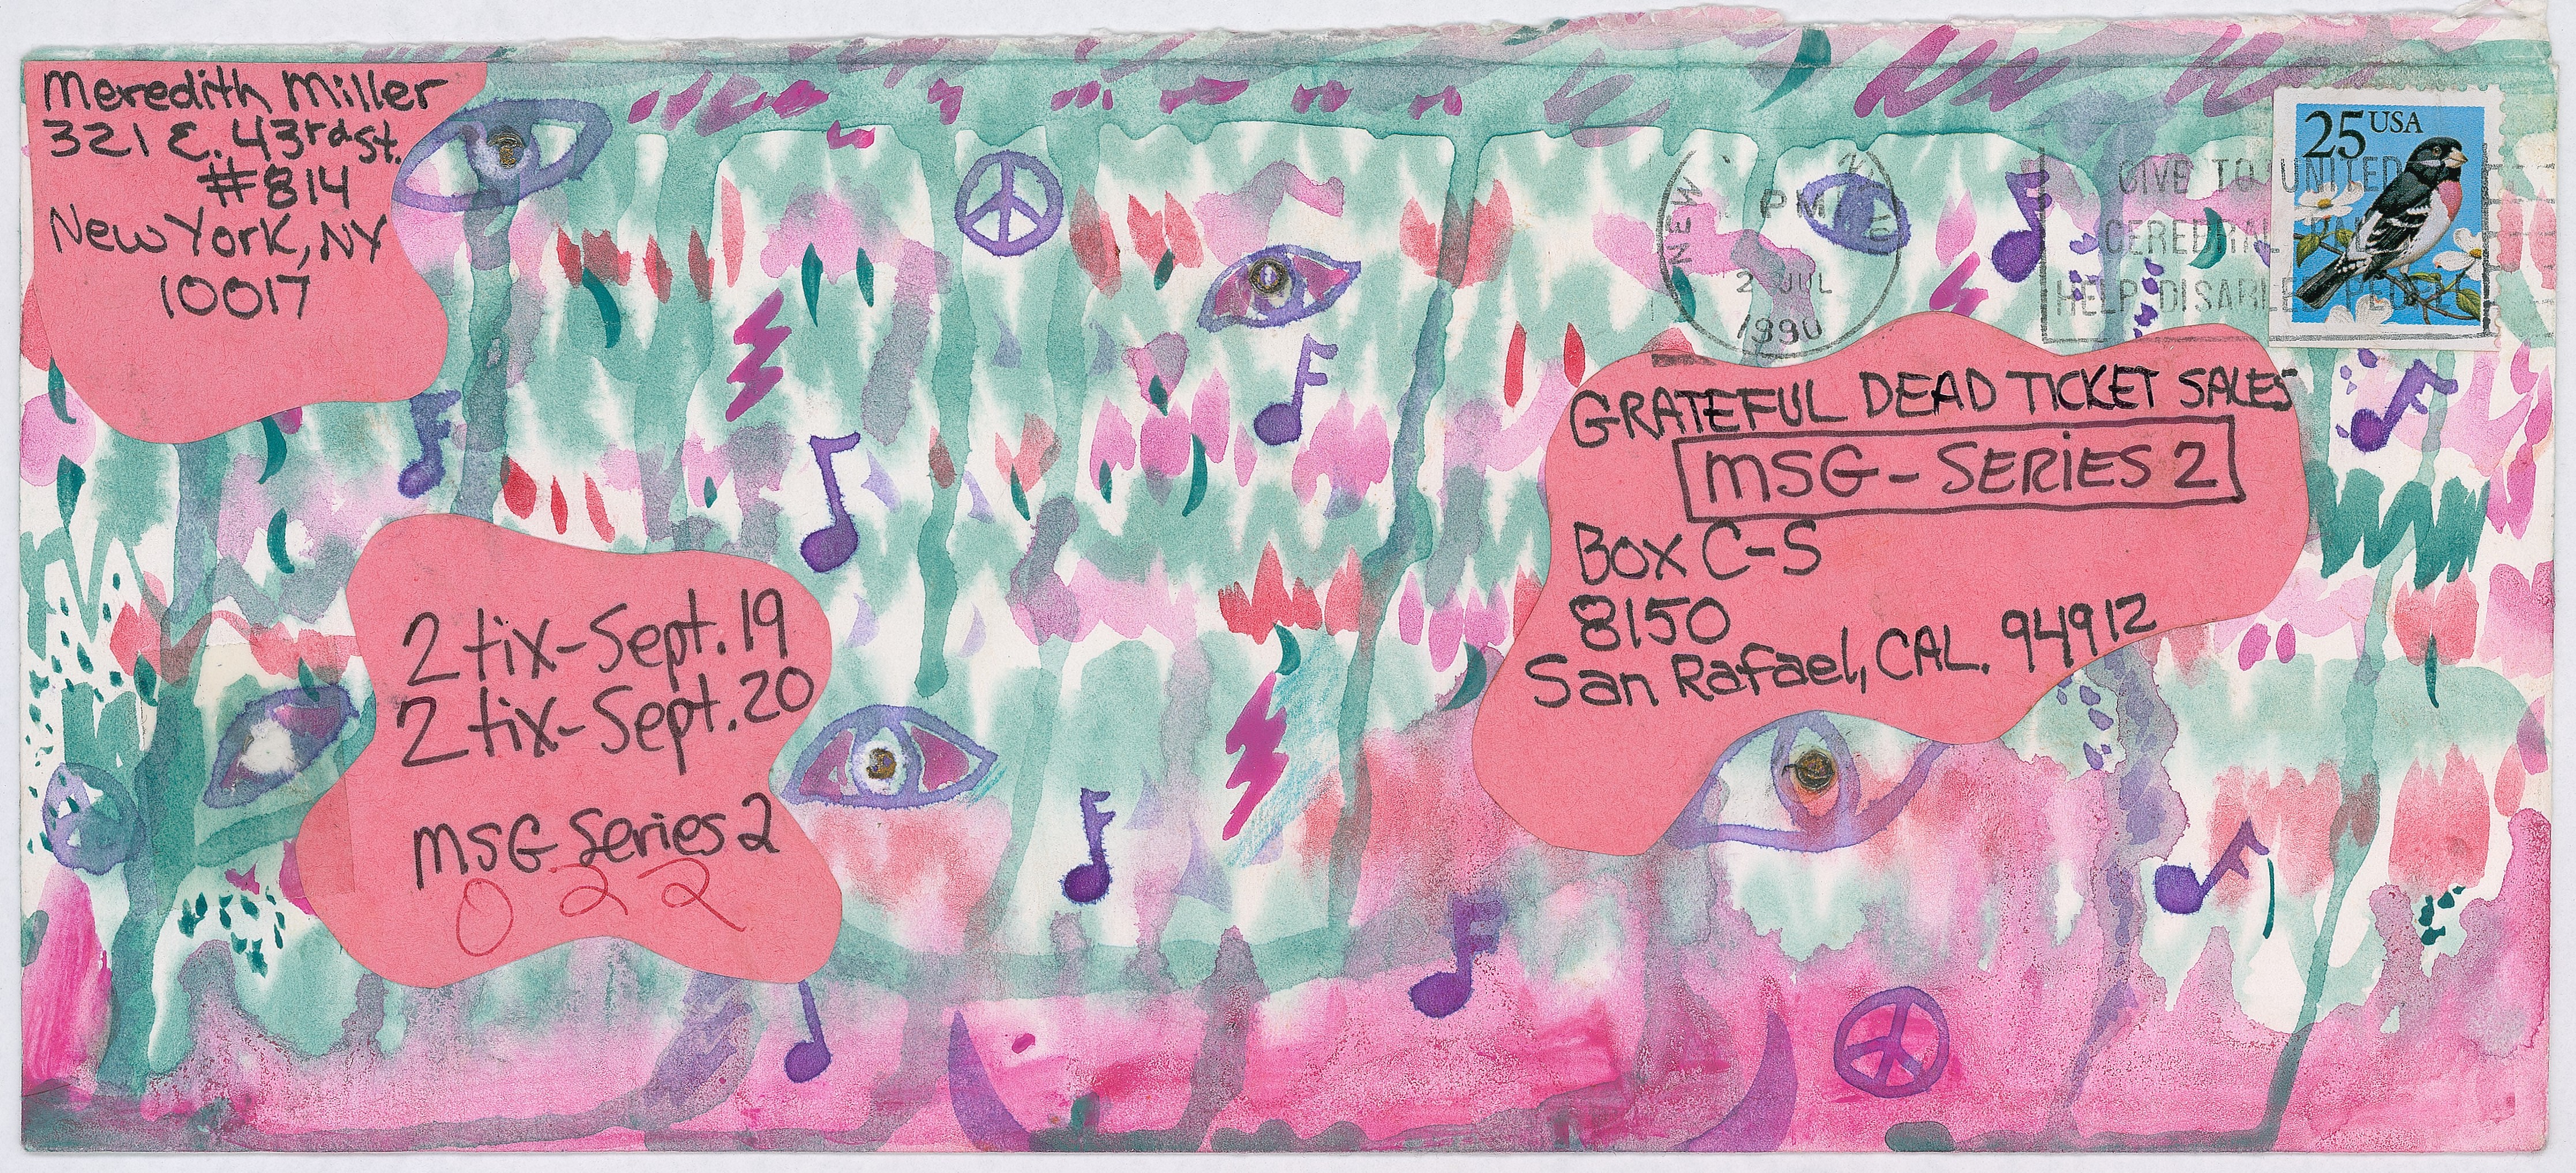 Meredith Miller
321 E. 43rd St.
#814
New York, NY
10017
NEW
PM
2 JUL
1990
GIVE TO UNITED
CEREBRAL
HELP DISABLED
25 USA
GRATEFUL DEAD TICKET SALES
MSG - SERIES 2
Box C-S
8150
San Rafael, CAL. 94912
2 tix - Sept. 19
2 tix - Sept. 20
MSG Series 2
022